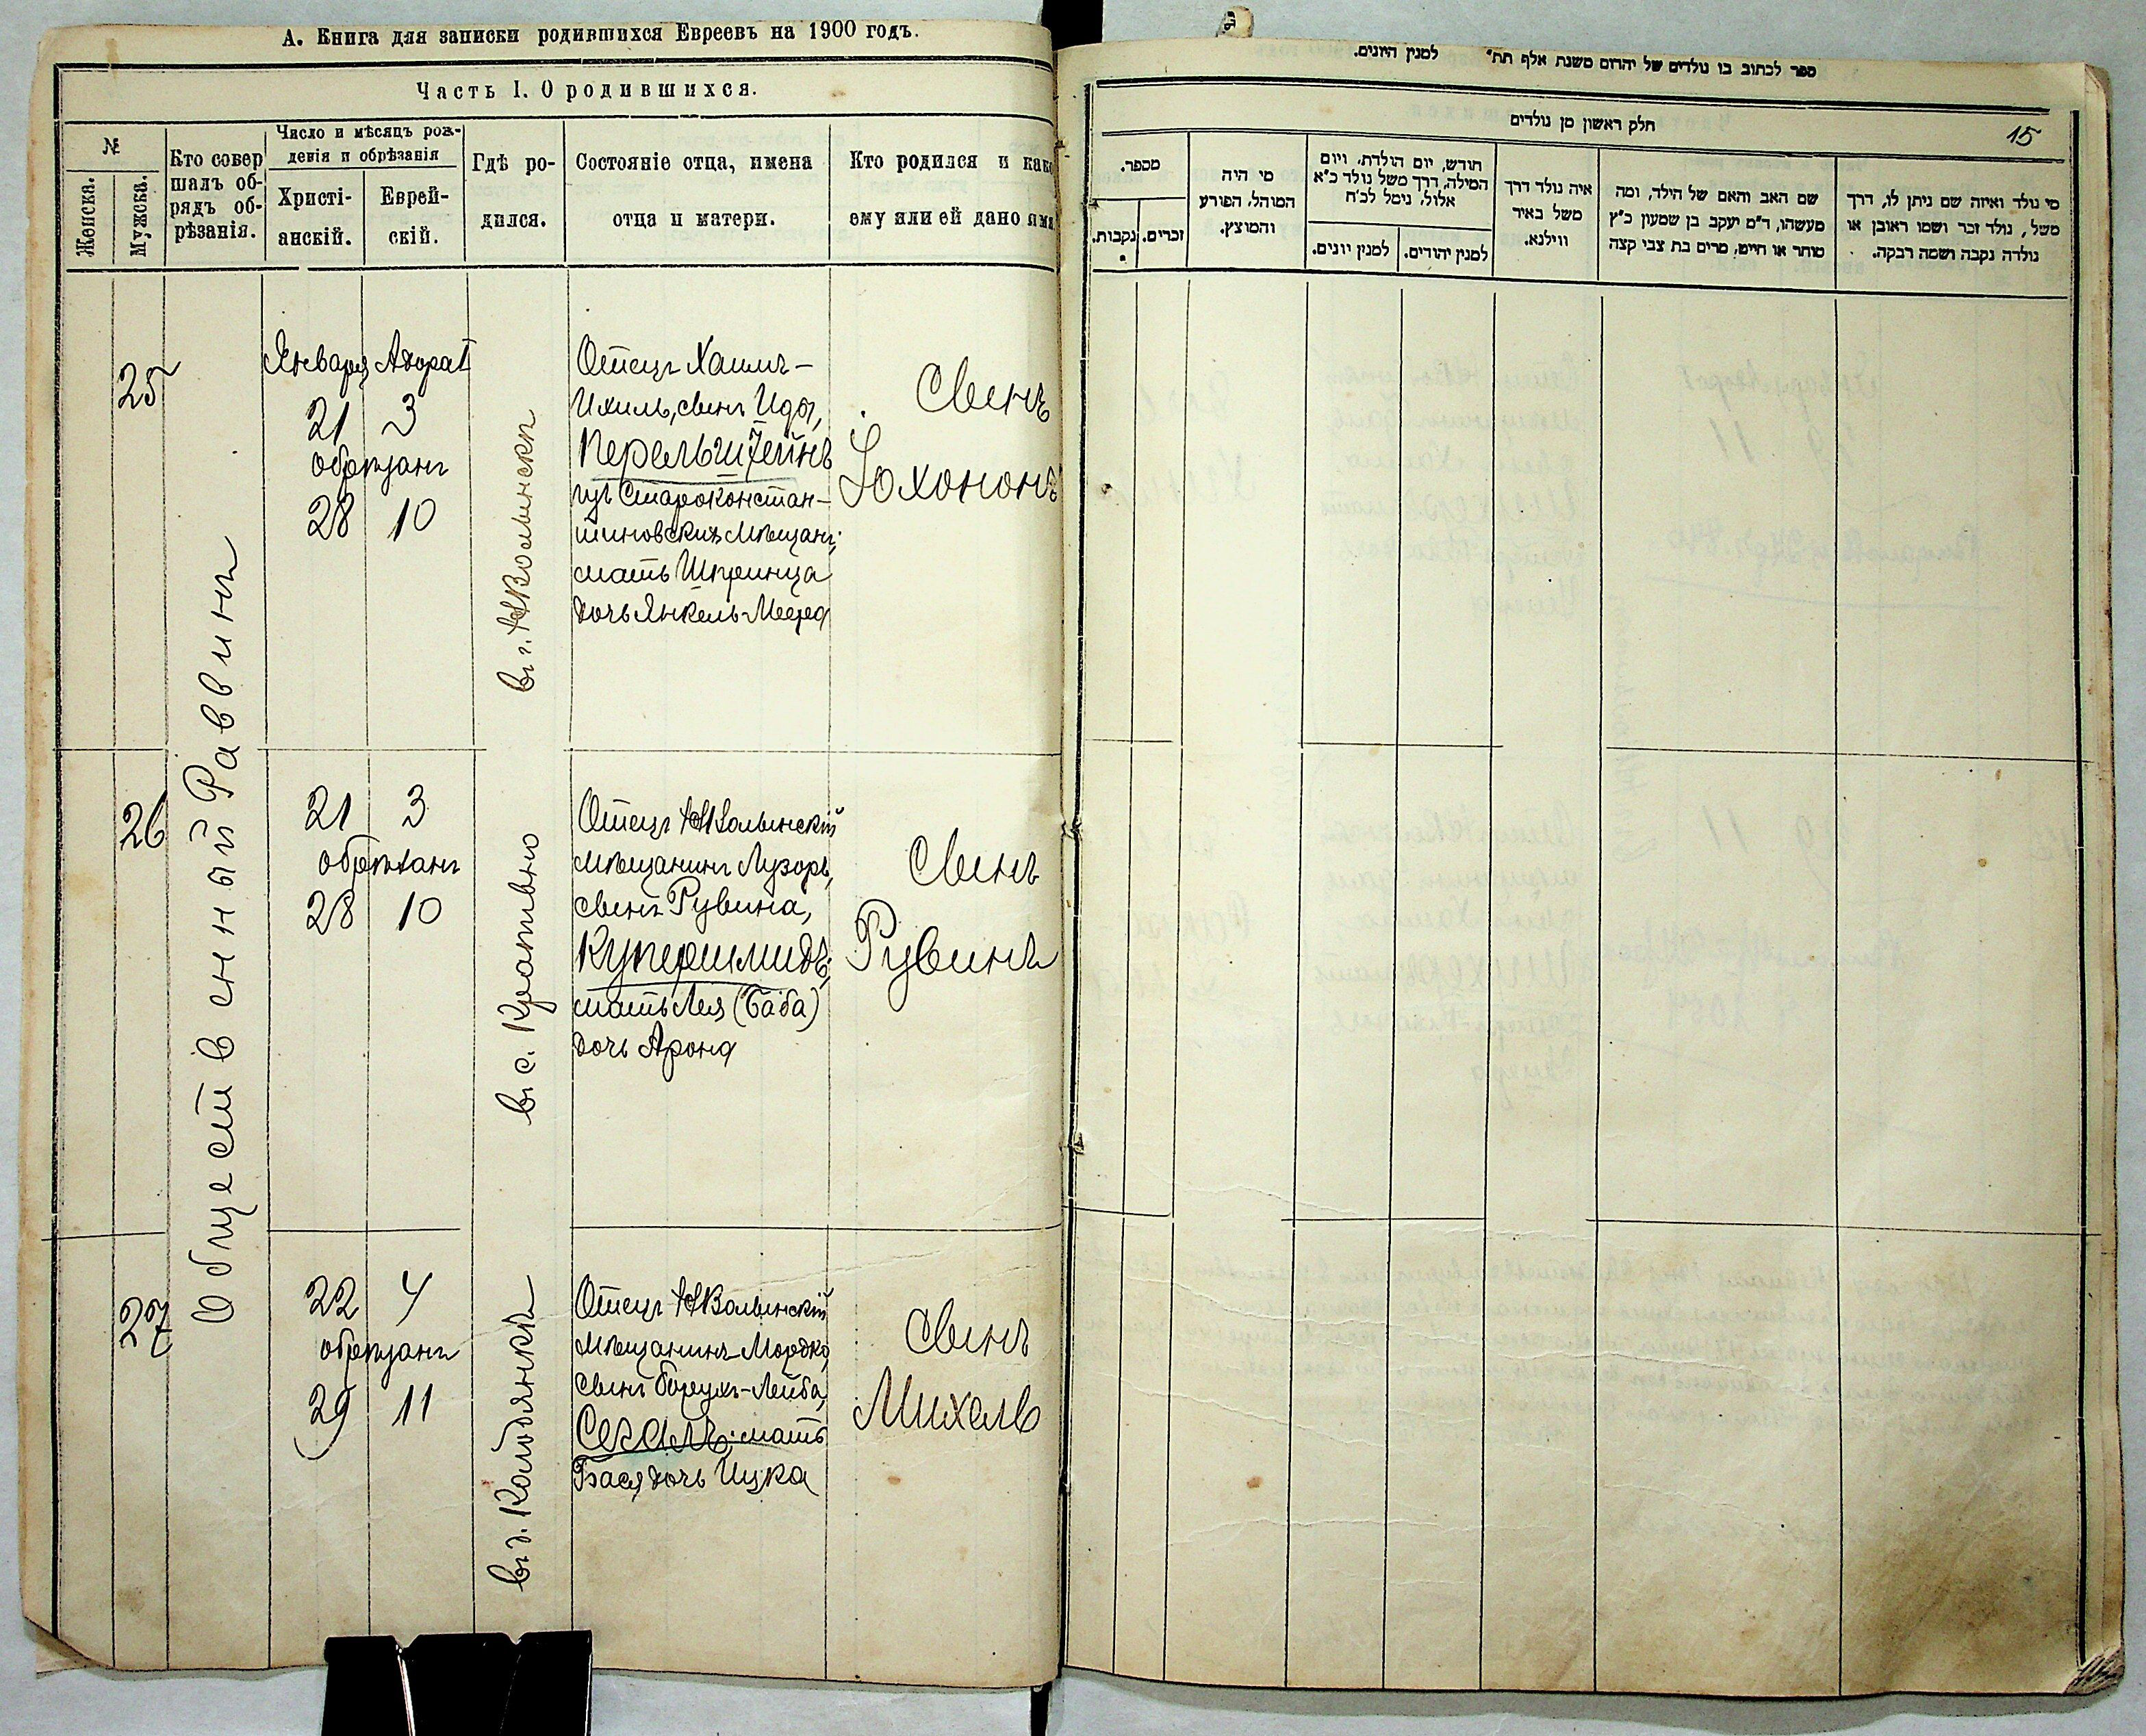 А. Книга для записки родившихся Евреевъ на 1900 годъ.
Часть I. О родившихся.
№
Женска.
Мужска.
Кто совер
шалъ об-
рядъ об-
рѣзанія.
Число и мѣсяцъ рож-
денія и обрѣзанія
Христі-
анскій.
Еврей-
скій.
Гдѣ ро-
дился.
Состояніе отца, имена
отца и матери.
Кто родился и како
ему или ей дано имя
Общественный Раввинъ
25
Января Адара I
21 3
обрѣзанъ
28 10
въ г. НВолынскѣ
Отецъ Хаимъ-
Ихиль, сынъ Иды,
Перельштейнъ
изъ Староконстан-
тиновскихъ мѣщанъ;
мать Шпринца
дочь Янкель-Меера
Сынъ
Іохононъ
26
21 3
обрѣзанъ
28 10
въ с.
Отецъ НВолынскій
мѣщанинъ Лузоръ,
сынъ Рувина,
Купершмидъ;
мать Лея (Баба)
дочь Арона
Сынъ
Рувинъ
27
22 4
обрѣзанъ
29 11
въ д. Колодянкѣ
Отецъ НВолынскій
мѣщанинъ Мордко,
сынъ Борухъ-Лейба,
Сегалъ; мать
Бася, дочь Ицка
Сынъ
Михель
ספר לכתוב בו נולדים של יהדום משנת אלף תת״ למנין היונים.
15
חלק ראשון מן נולדים
מספר.
זכרים.
נקבות.
מי היה
המוהל, הפורע
והמוצץ.
חודש, יום הולדת, ויום
המילה, דרך משל נולד כ״א
אלול, נימל לכ״ח
למנין יהודים.
למנין יונים.
איה נולד דרך
משל באיר
ווילנא.
שם האב והאם של הילד, ומה
מעשהו, ד״מ יעקב בן שמעון כ״ץ
סוחר או חייט, מרים בת צבי קצה
מי נולד ואיזה שם ניתן לו, דרך
משל, נולד זכר ושמו ראובן או
נולדה נקבה ושמה רבקה.